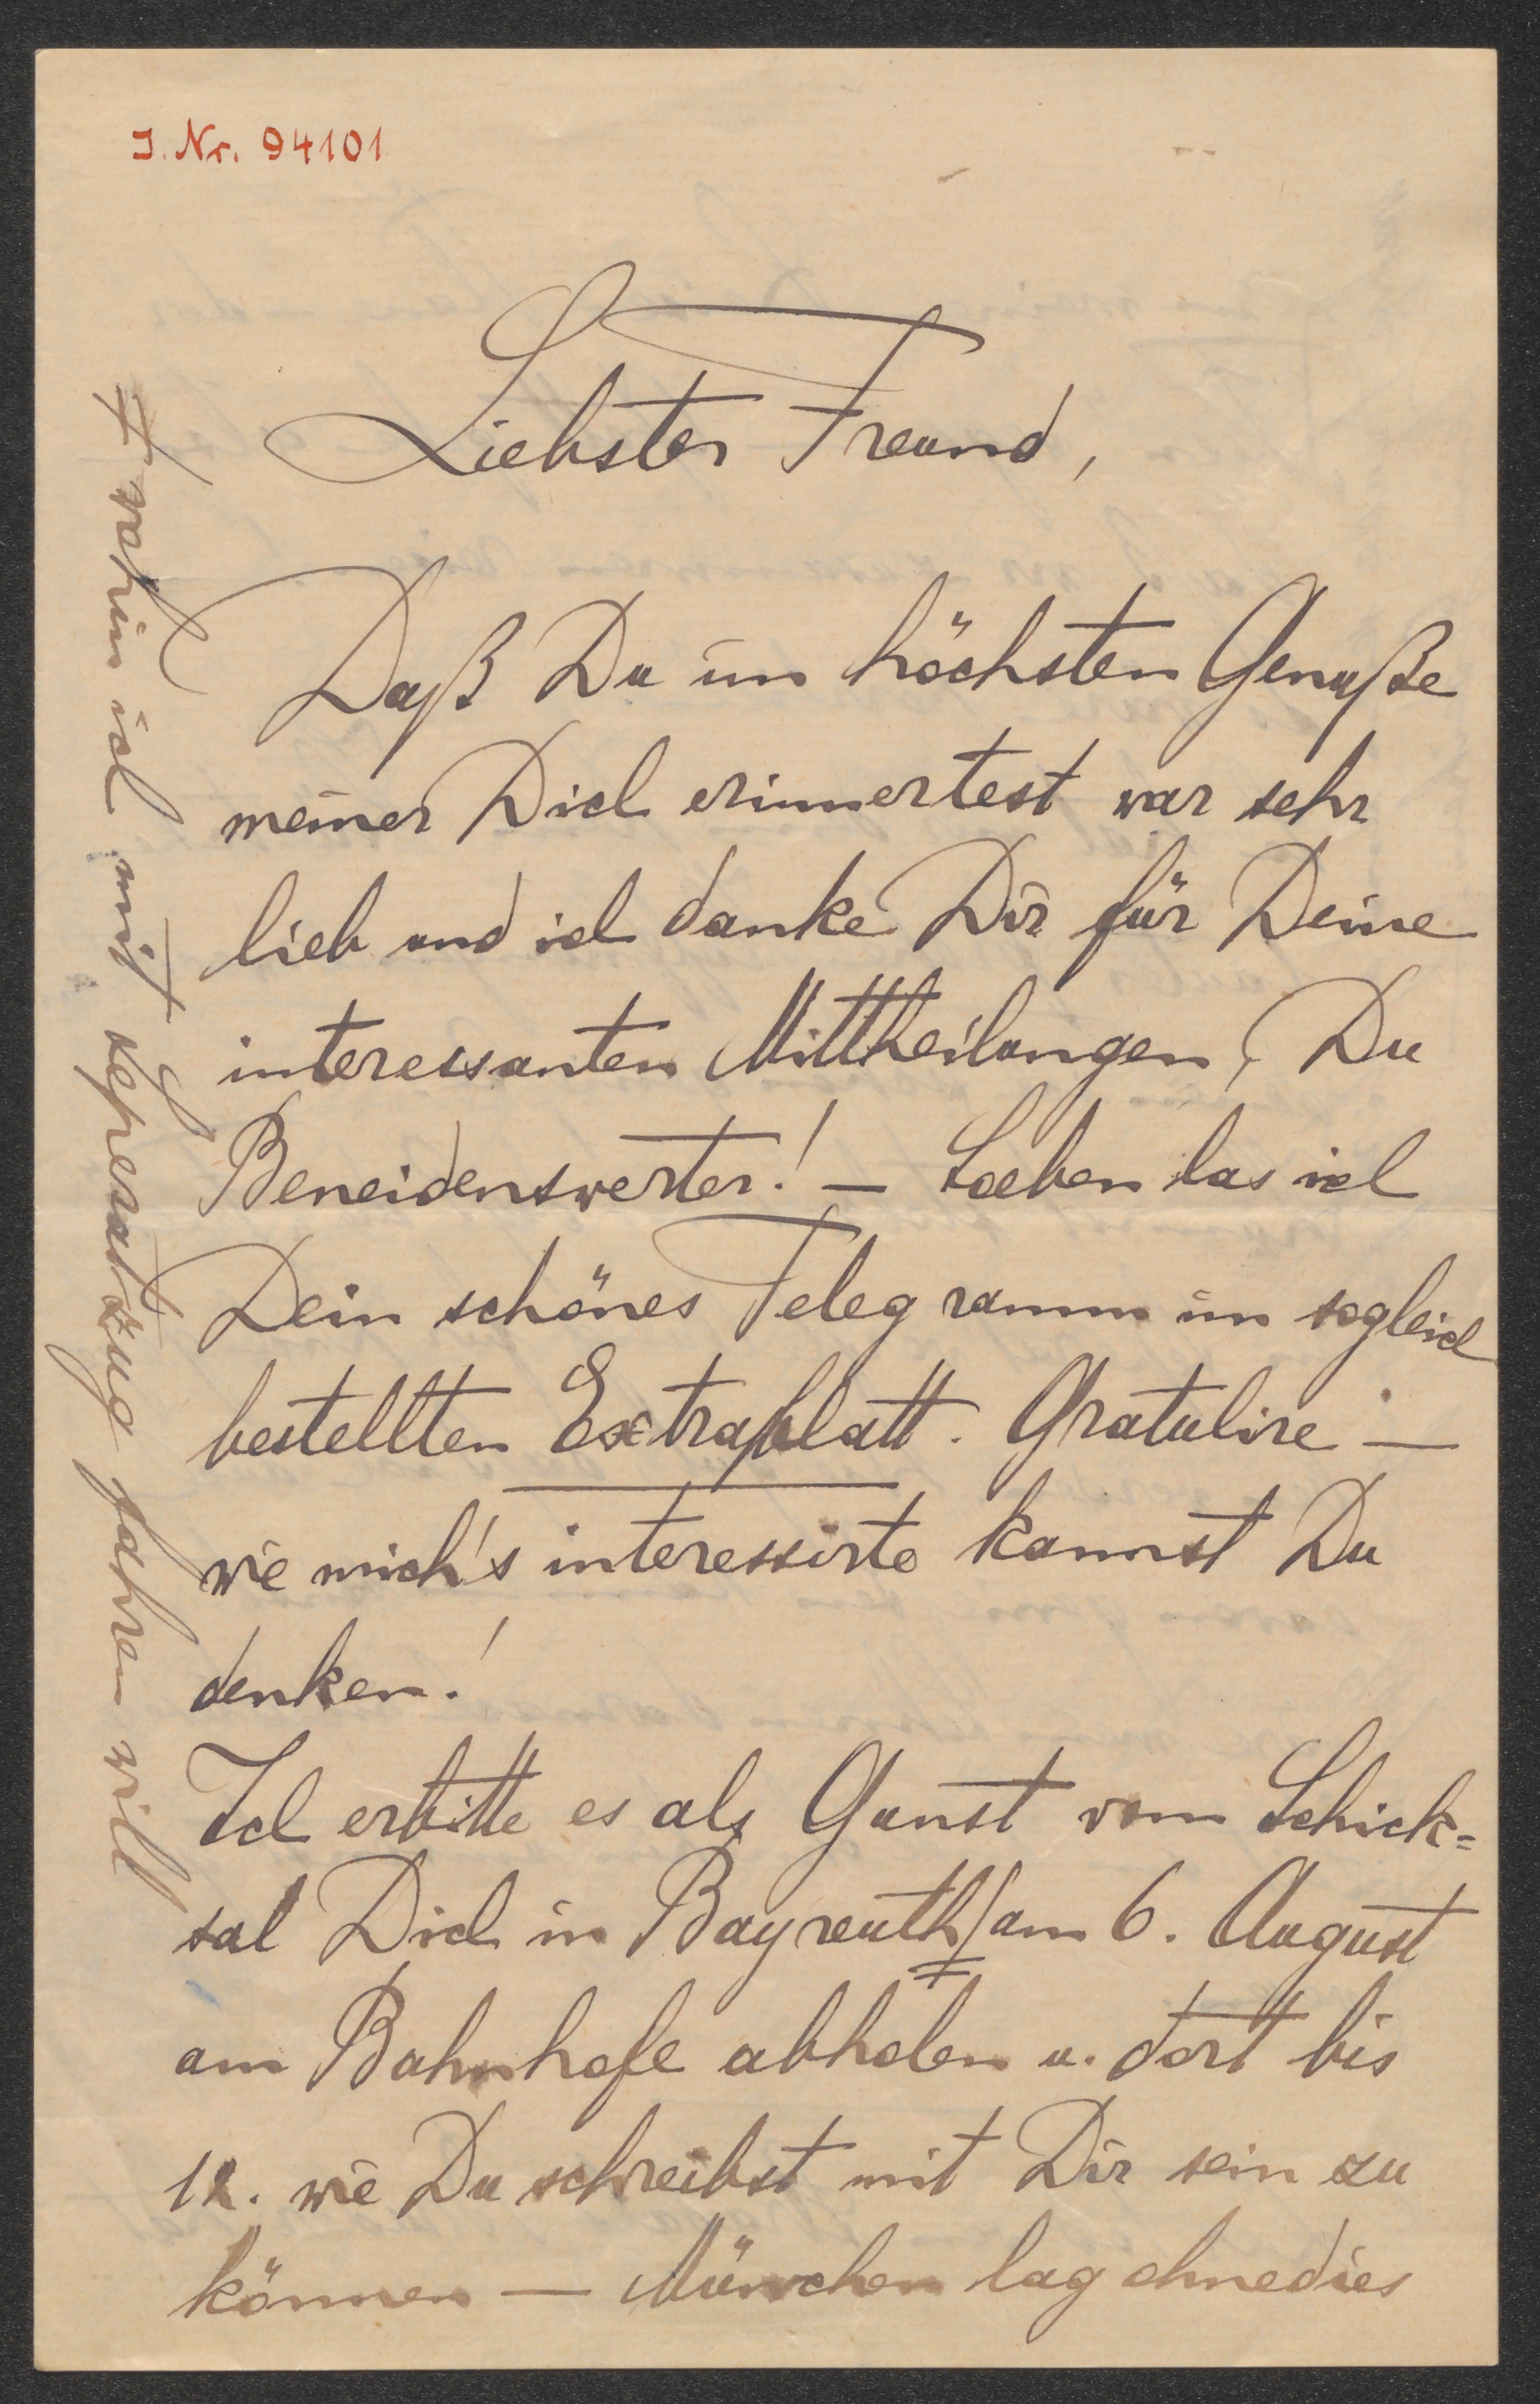 J. Nr. 94101
Liebster Freund,
Daß Du im höchsten Genuße
meiner Dich erinnertest war sehr
lieb und ich danke Dir für Deine
interessanten Mittheilungen, Du
Beneidenswerter! — Soeben las ich
Dein schönes Telegramm im sogleich
bestellten Extrablatt. Gratulire —
wie mich's interessirte kannst Du
denken!
Ich erbitte es als Gunst vom Schick=
sal Dich in Bayreuth ╪ am 6. August
am Bahnhofe abholen u. dort bis
12. wie Du schreibst mit Dir sein zu
können — München lag ohnedies
╪ wohin ich mit Separatzug fahren will